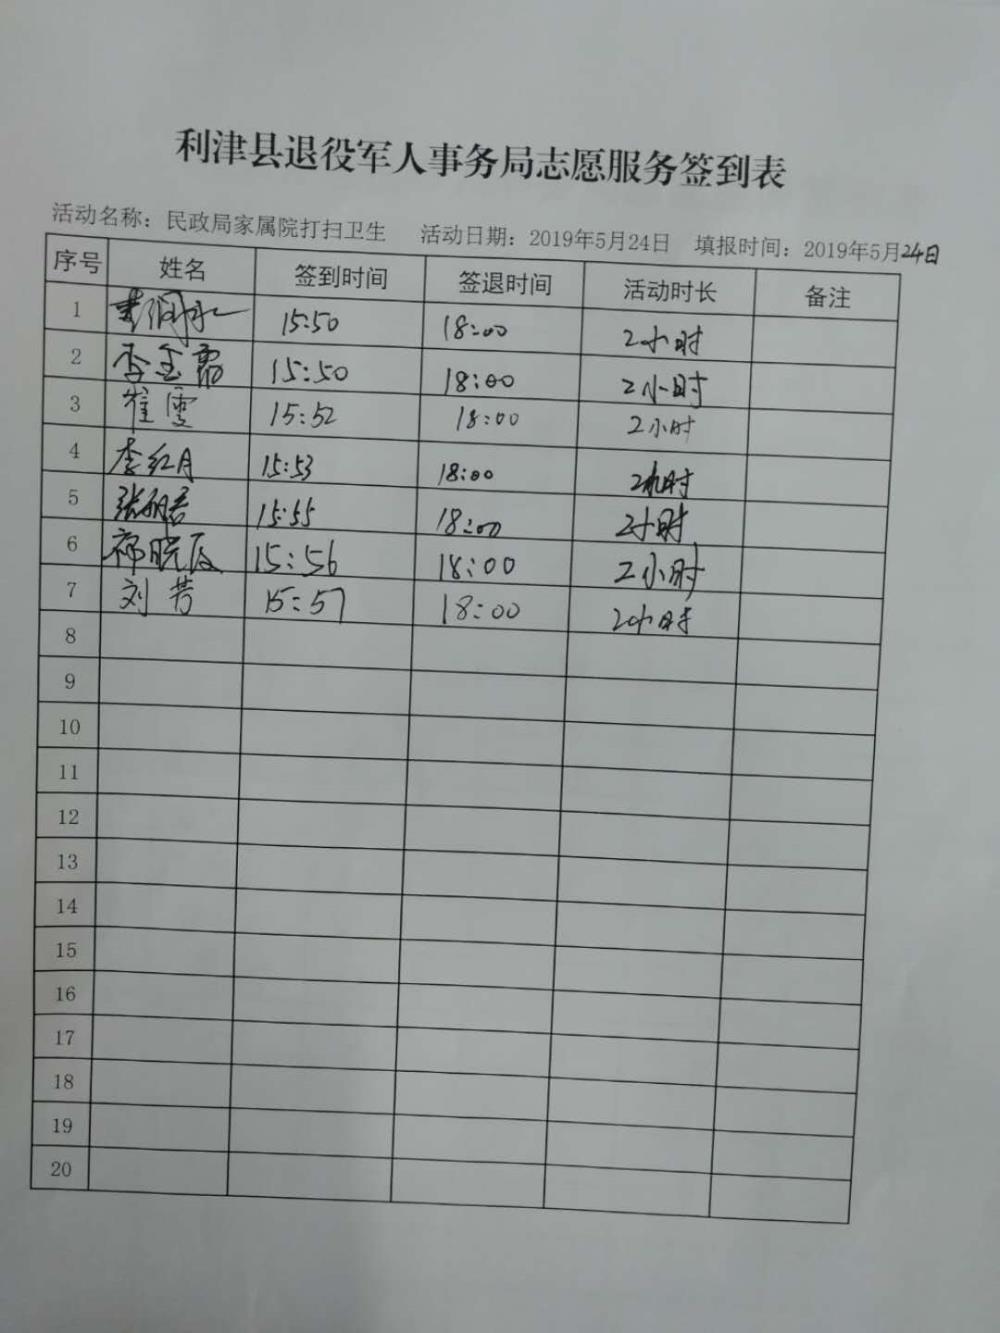 利津县退役军人事务局志愿服务签到表
活动名称：民政局家属院打扫卫生 活动日期：2019年5月24日 填报时间：2019年5月24日
序号 姓名 签到时间 签退时间 活动时长 备注
1 15:50 18:00 2小时
2 李金霜 15:50 18:00 2小时
3 崔雯 15:52 18:00 2小时
4 李红月 15:53 18:00 2小时
5 15:55 18:00 2小时
6 祁晓辰 15:56 18:00 2小时
7 刘芳 15:57 18:00 2小时
8
9
10
11
12
13
14
15
16
17
18
19
20